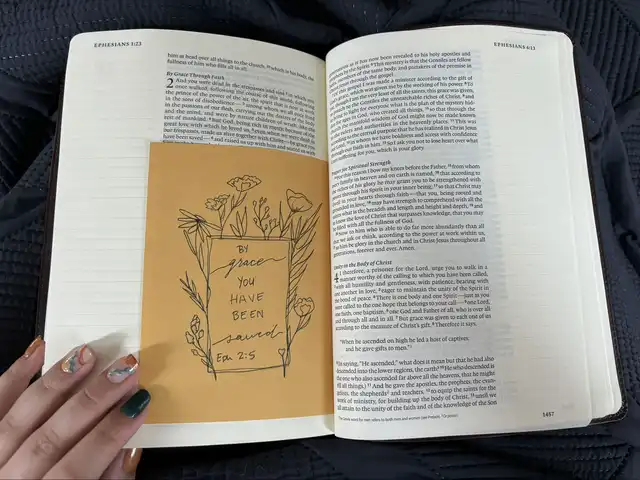 EPHESIANS 1:23
him as head over all things to the church, 23 which is his body, the
fullness of him who fills all in all.
By Grace Through Faith
2 And you were dead in the trespasses and sins 2 in which you
once walked, following the course of this world, following
the prince of the power of the air, the spirit that is now at work
in the sons of disobedience— 3 among whom we all once lived
in the passions of our flesh, carrying out the desires of the body
and the mind, and were by nature children of wrath, like the rest
of mankind. 4 But God, being rich in mercy, because of the
great love with which he loved us, 5 even when we were dead in
our trespasses, made us alive together with Christ—by grace you
have been saved— 6 and raised us up with him and seated us with
BY
grace
YOU
HAVE
BEEN
saved
Eph 2:5
EPHESIANS 4:13
generations as it has now been revealed to his holy apostles and
prophets by the Spirit. 6 This mystery is that the Gentiles are fellow
heirs, members of the same body, and partakers of the promise in
Christ Jesus through the gospel.
7 Of this gospel I was made a minister according to the gift of
God's grace, which was given me by the working of his power. 8 To
me, though I am the very least of all the saints, this grace was given,
to preach to the Gentiles the unsearchable riches of Christ, 9 and
to bring to light for everyone what is the plan of the mystery hid-
den for ages in God, who created all things, 10 so that through the
church the manifold wisdom of God might now be made known
to the rulers and authorities in the heavenly places. 11 This was
according to the eternal purpose that he has realized in Christ Jesus
our Lord, 12 in whom we have boldness and access with confidence
through our faith in him. 13 So I ask you not to lose heart over what
I am suffering for you, which is your glory.
Prayer for Spiritual Strength
14 For this reason I bow my knees before the Father, 15 from whom
every family in heaven and on earth is named, 16 that according to
the riches of his glory he may grant you to be strengthened with
power through his Spirit in your inner being, 17 so that Christ may
dwell in your hearts through faith—that you, being rooted and
grounded in love, 18 may have strength to comprehend with all the
saints what is the breadth and length and height and depth, 19 and
to know the love of Christ that surpasses knowledge, that you may
be filled with all the fullness of God.
20 Now to him who is able to do far more abundantly than all
that we ask or think, according to the power at work within us,
21 to him be glory in the church and in Christ Jesus throughout all
generations, forever and ever. Amen.
Unity in the Body of Christ
4 I therefore, a prisoner for the Lord, urge you to walk in a
manner worthy of the calling to which you have been called,
2 with all humility and gentleness, with patience, bearing with
one another in love, 3 eager to maintain the unity of the Spirit in
the bond of peace. 4 There is one body and one Spirit—just as you
were called to the one hope that belongs to your call— 5 one Lord,
one faith, one baptism, 6 one God and Father of all, who is over all
and through all and in all. 7 But grace was given to each one of us
according to the measure of Christ's gift. 8 Therefore it says,
"When he ascended on high he led a host of captives,
and he gave gifts to men."
9 (In saying, "He ascended," what does it mean but that he had also
descended into the lower regions, the earth? 10 He who descended is
the one who also ascended far above all the heavens, that he might
fill all things.) 11 And he gave the apostles, the prophets, the evan-
gelists, the shepherds and teachers, 12 to equip the saints for the
work of ministry, for building up the body of Christ, 13 until we
all attain to the unity of the faith and of the knowledge of the Son
1457